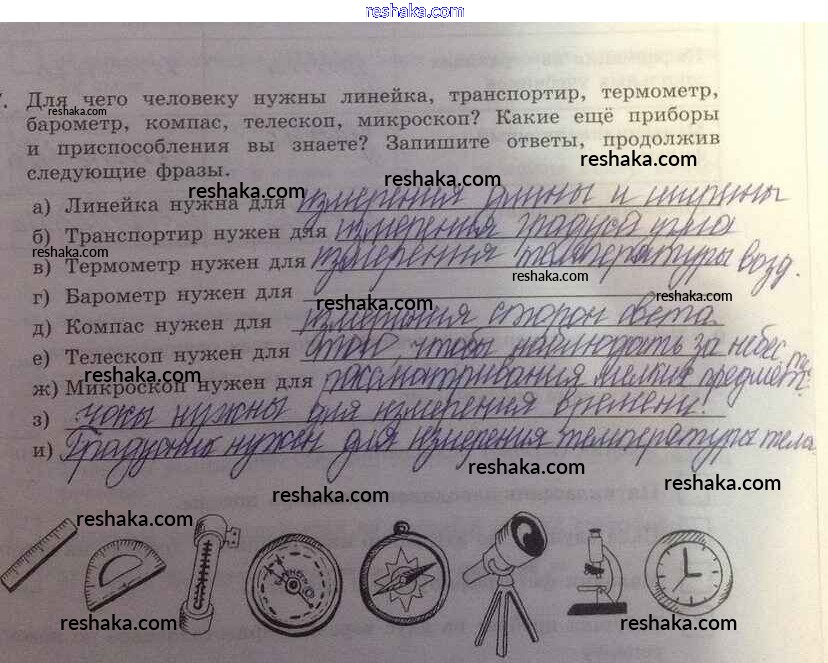 reshaka.com
7. Для чего человеку нужны линейка, транспортир, термометр,
reshaka.com
барометр, компас, телескоп, микроскоп? Какие ещё приборы
и приспособления вы знаете? Запишите ответы, продолжив
reshaka.com
следующие фразы.
reshaka.com
reshaka.com
а) Линейка нужна для измерения длины и ширины
б) Транспортир нужен для измерения градуса угла
reshaka.com
в) Термометр нужен для измерения температуры возд.
reshaka.com
г) Барометр нужен для
reshaka.com
reshaka.com
д) Компас нужен для измерения сторон света
е) Телескоп нужен для того, чтобы наблюдать за небес
reshaka.com
ж) Микроскоп нужен для рассматривания мелких предмет.
reshaka.com
з) часы нужны для измерения времени.
и) Градусник нужен для измерения температуры тела
reshaka.com
reshaka.com
reshaka.com
reshaka.com
reshaka.com
reshaka.com
reshaka.com
reshaka.com